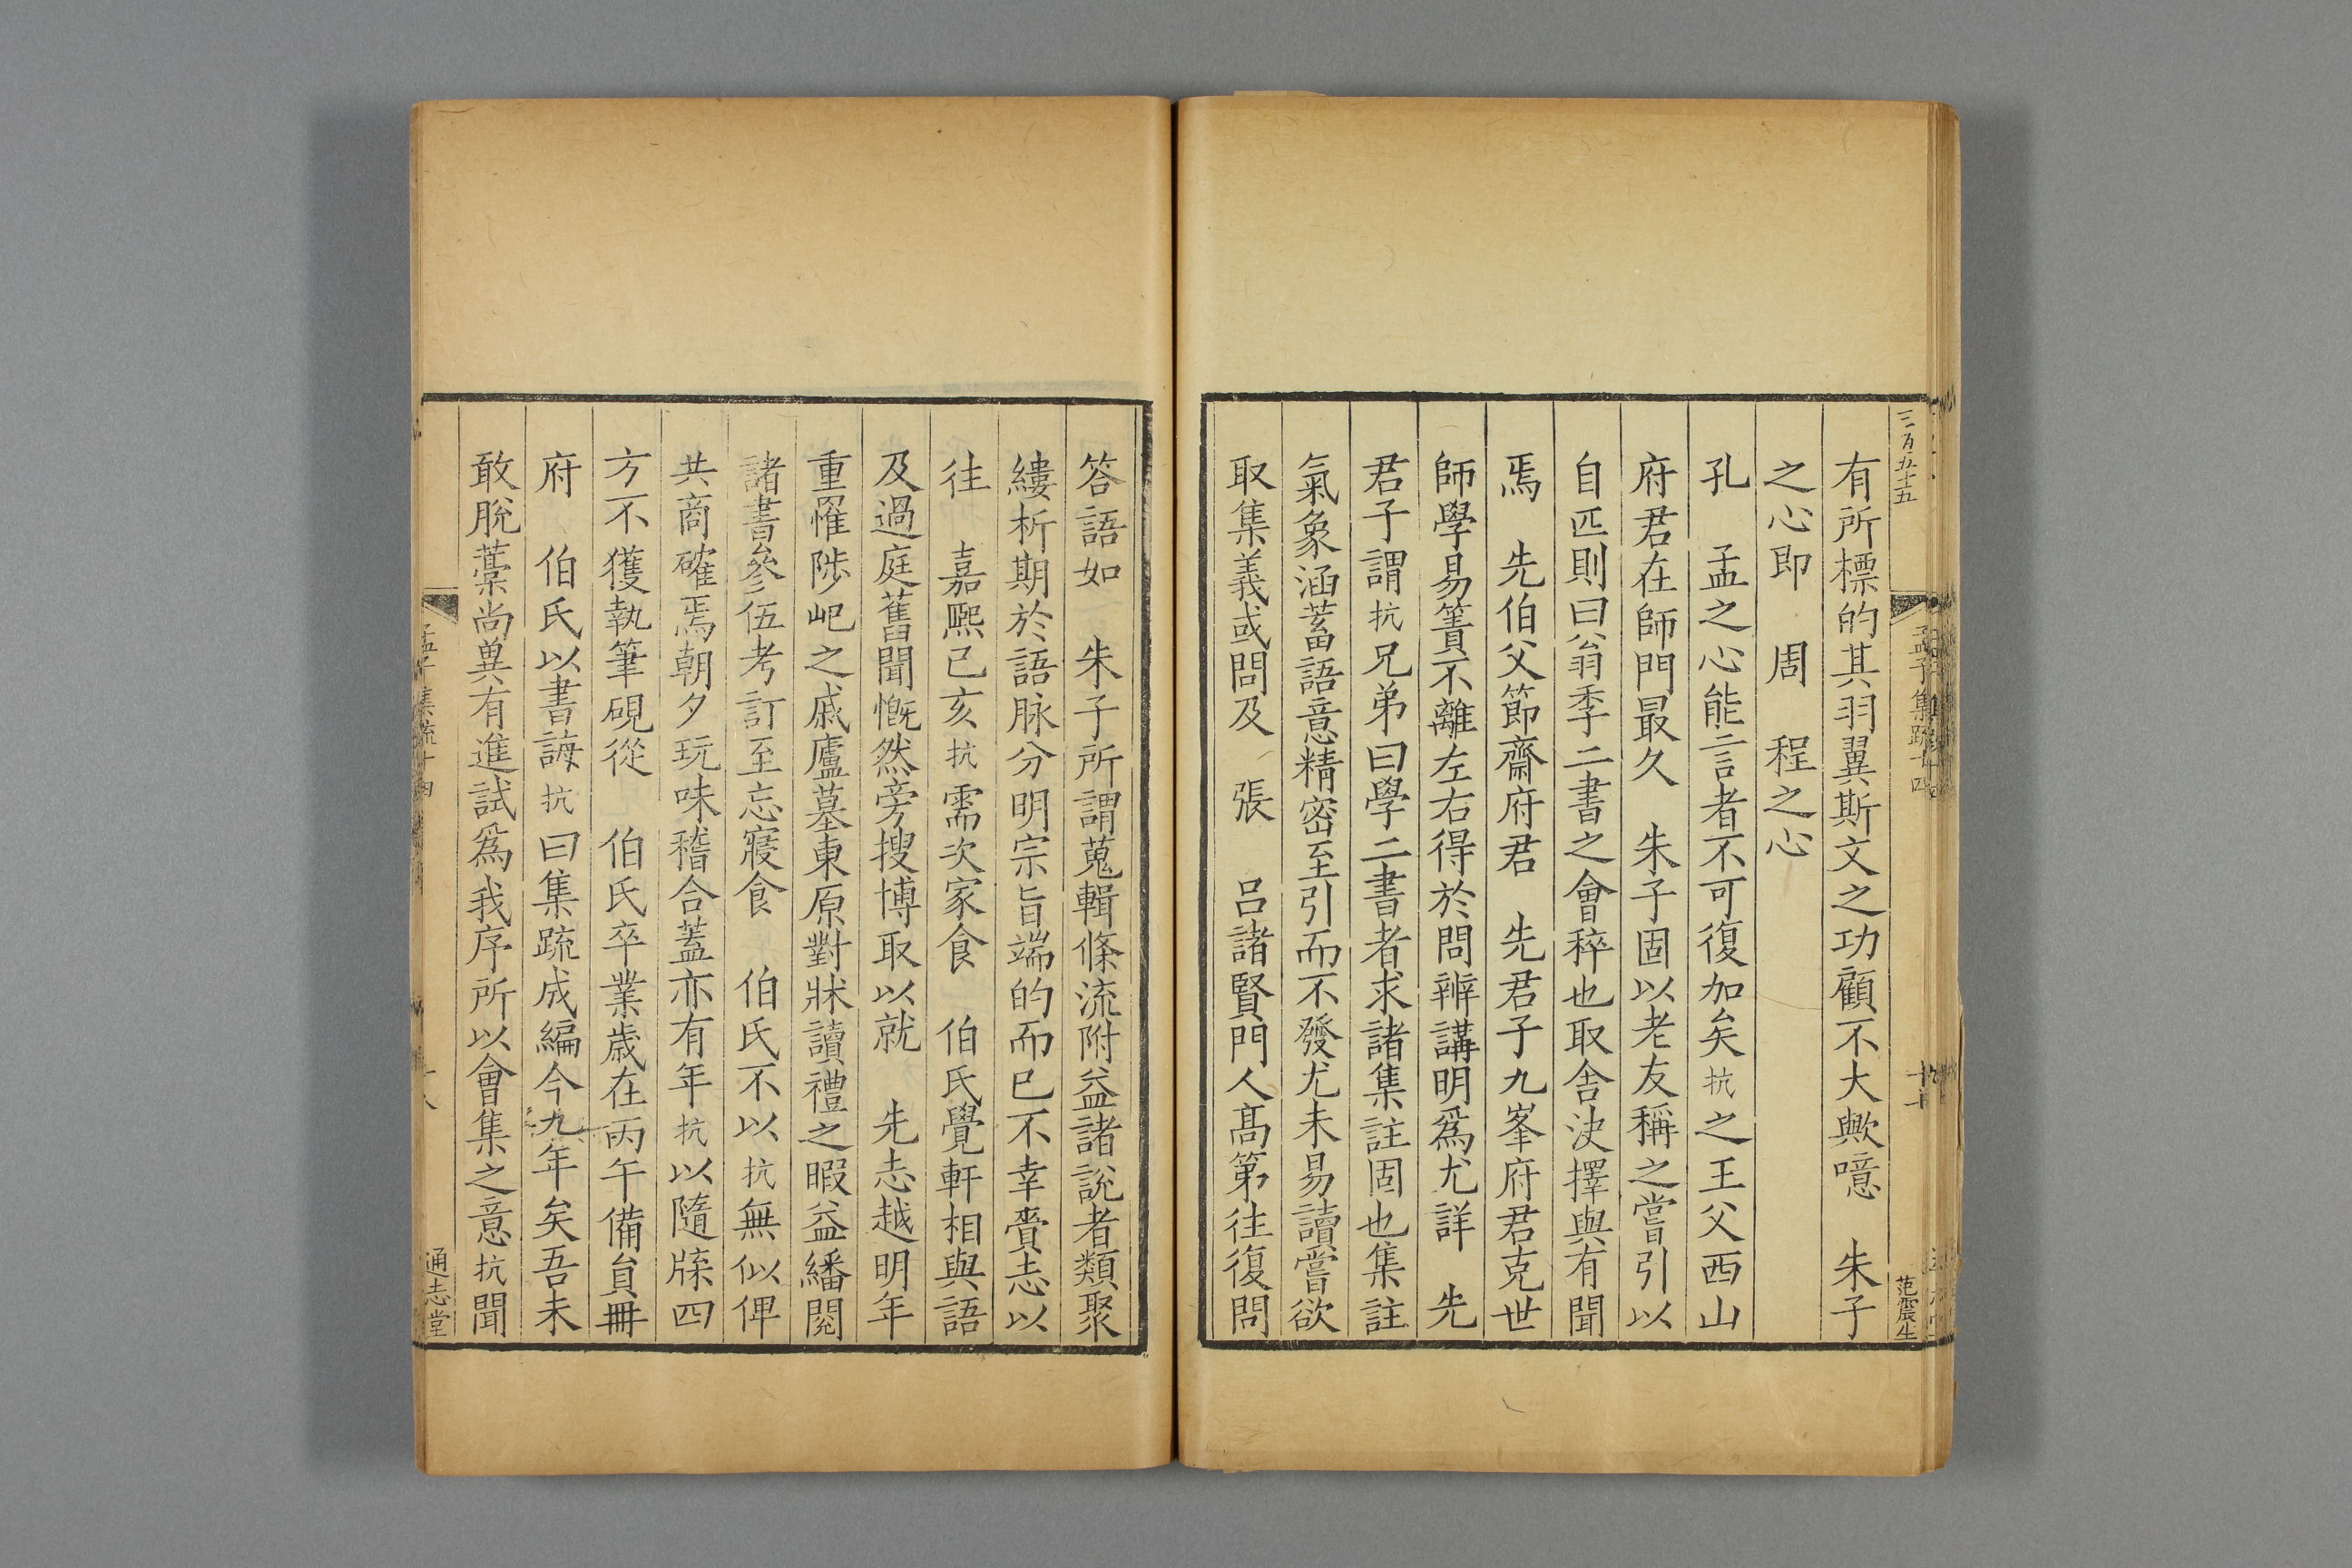 三百五十五
孟子集疏十四
范震生
有所標的其羽翼斯文之功顧不大歟噫　朱子
之心即　周　程之心
孔　孟之心能言者不可復加矣抗之王父西山
府君在師門最久　朱子固以老友稱之嘗引以
自匹則曰翁季二書之會稡也取舍決擇與有聞
焉　先伯父節齋府君　先君子九峯府君克世
師學易簀不離左右得於問辨講明爲尤詳　先
君子謂抗兄弟曰學二書者求諸集註固也集註
氣象涵蓄語意精密至引而不發尤未易讀嘗欲
取集義或問及　張　呂諸賢門人髙第往復問
答語如　朱子所謂蒐輯條流附益諸說者類聚
縷析期於語脉分明宗旨端的而已不幸賫志以
往　嘉熙己亥抗需次家食　伯氏覺軒相與語
及過庭舊聞慨然旁搜博取以就　先志越明年
重罹陟屺之戚廬墓東原對牀讀禮之暇益繙閱
諸書參伍考訂至忘寢食　伯氏不以抗無似俾
共商確焉朝夕玩味稽合蓋亦有年抗以隨牒四
方不獲執筆硯從　伯氏卒業歲在丙午備員冊
府　伯氏以書誨抗曰集疏成編今九年矣吾未
敢脫藁尚兾有進試爲我序所以會集之意抗聞
孟子集疏十四
十八
通志堂